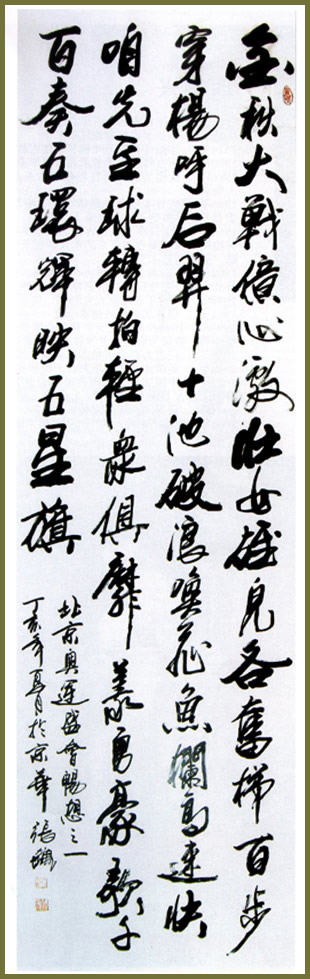 金秋大戰億心激壯女雄兒各奮梯百步
穿楊呼后羿十池破浪喚飛魚欄高速快
咱先至球轉拍輕衆俱靡羨勇豪歌千
百奏五環輝映五星旗
北京奧運盛會暢想之一
丁亥年夏月於京華張